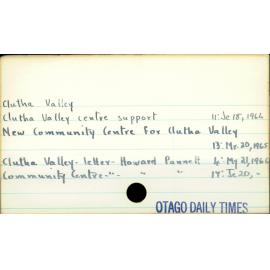 Clutha Valley
Clutha Valley centre support 11: Je 18, 1964
New Community Centre For Clutha Valley
13: Mr. 20, 1965
Clutha Valley - letter - Howard Pannett 4: My 21, 1966
Community Centre - " - " " 17: Je 20, -
OTAGO DAILY TIMES